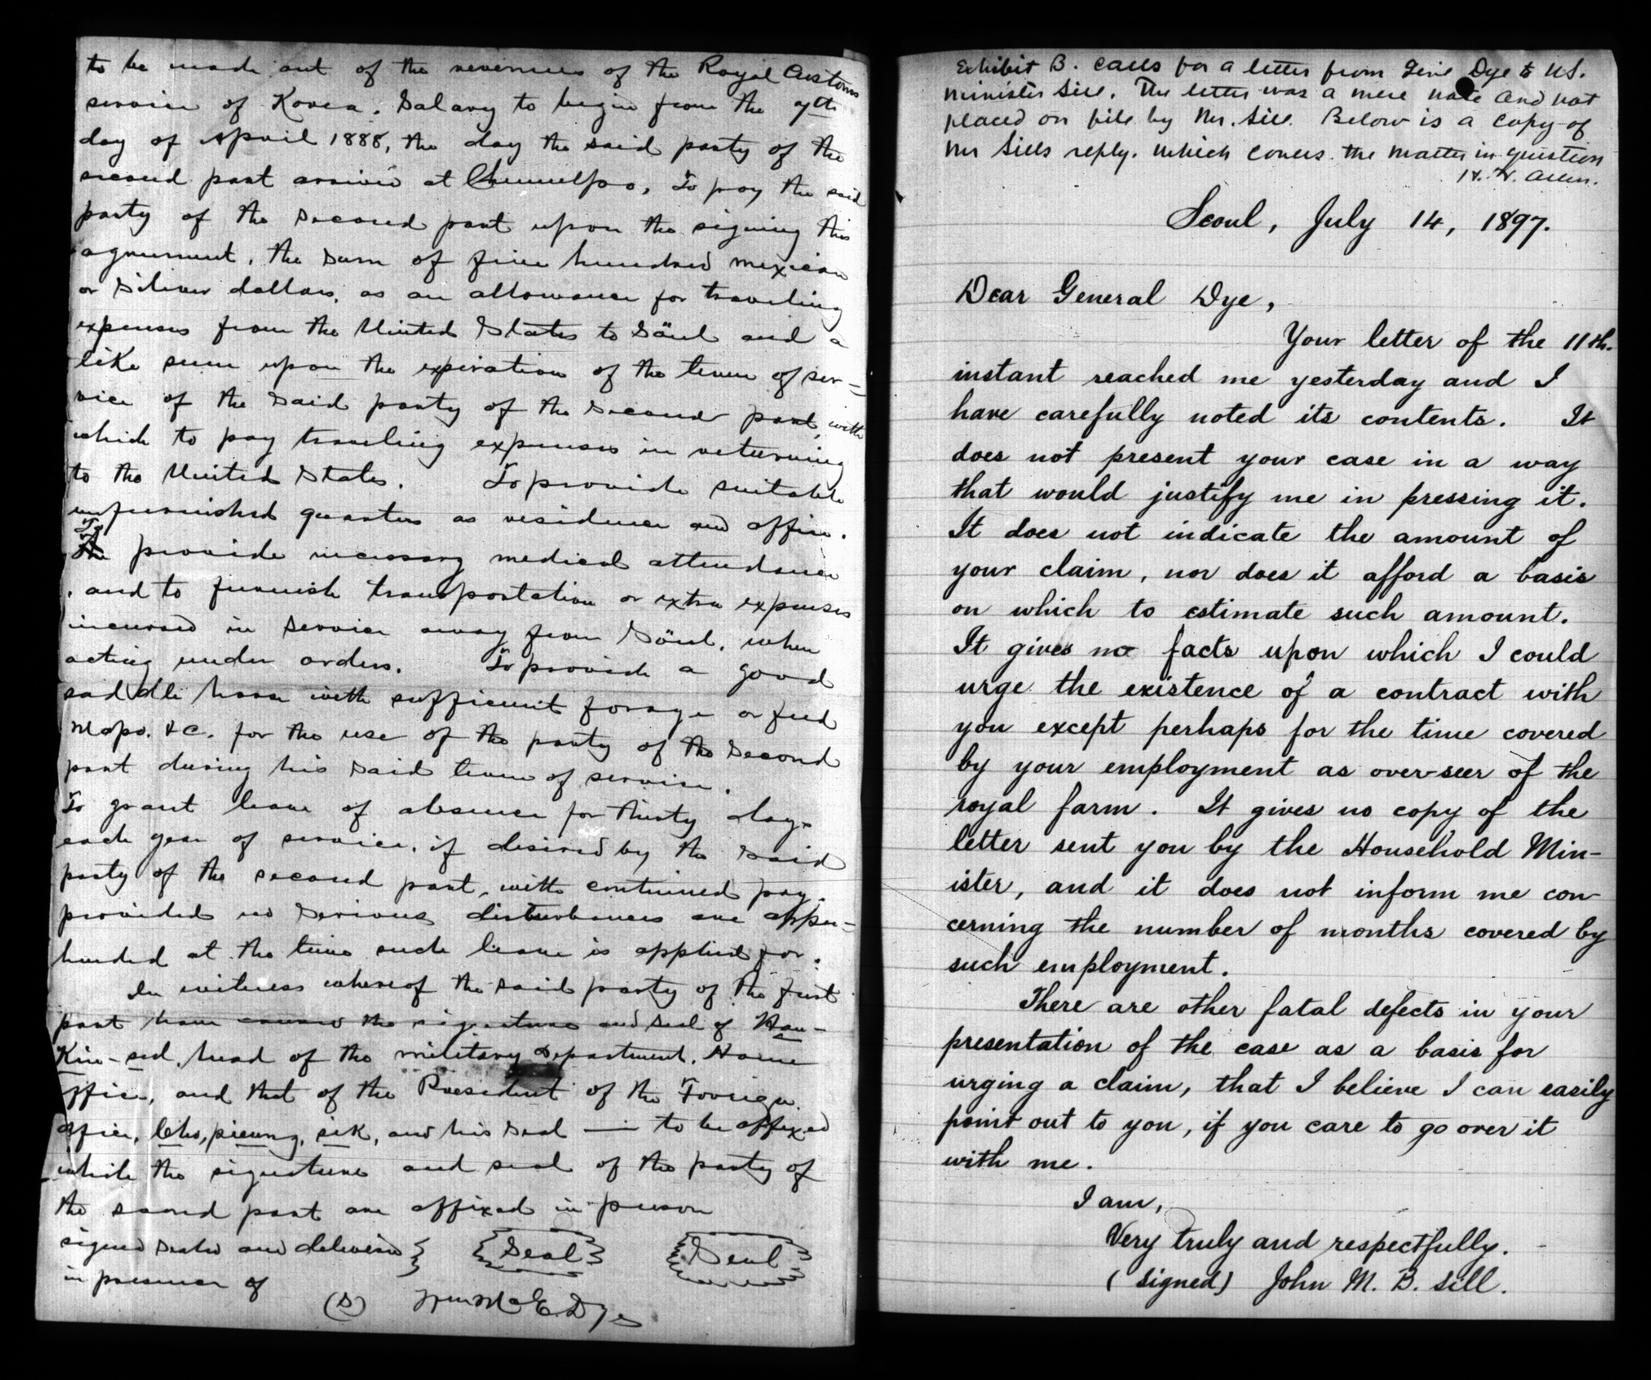 to be made out of the revenues of the Royal Customs
service of Korea. Salary to begin from the 7th
day of April 1888, the day the said party of the
second part arrived at Chemulpoo. To pay the said
party of the second part upon the signing this
agreement, the sum of five hundred mexican
or Silver dollars, as an allowance for traveling
expenses from the United States to Söul and a
like sum upon the expiration of the term of ser-
vice of the said party of the second part, with
which to pay traveling expenses in returning
to the United States. To provide suitable
unfurnished quarters as residence and office.
To provide necessary medical attendance
, and to furnish transportation or extra expenses
incurred in service away from Söul, when
acting under orders. To provide a good
saddle horse with sufficient forage or feed
Mapo. &c. for the use of the party of the second
part during his said term of service.
To grant leave of absence for thirty days
each year of service, if desired by the said
party of the second part, with continued pay.
provided no serious disturbances are appre-
hended at the time such leave is applied for.
In witness whereof the said party of the first
part have caused the signature and seal of Han-
Kiu-sed, head of the military Department, Home
office, and that of the President of the Foreign
office, Cho, pieung, sik, and his seal — to be affixed
while the signature and seal of the party of
the second part are affixed in person
signed sealed and delivered } {Seal} {Seal}
in presence of
(S) Wm McE. Dye
Exhibit B. calls for a letter from Genl Dye to U.S.
Minister Sill. The letter was a mere note and not
placed on file by Mr. Sill. Below is a copy of
Mr Sills reply. which covers. the matter in question
H. N. Allen.
Seoul, July 14, 1897.
Dear General Dye,
Your letter of the 11th.
instant reached me yesterday and I
have carefully noted its contents. It
does not present your case in a way
that would justify me in pressing it.
It does not indicate the amount of
your claim, nor does it afford a basis
on which to estimate such amount.
It gives no facts upon which I could
urge the existence of a contract with
you except perhaps for the time covered
by your employment as over-seer of the
royal farm. It gives no copy of the
letter sent you by the Household Min-
ister, and it does not inform me con-
cerning the number of months covered by
such employment.
There are other fatal defects in your
presentation of the case as a basis for
urging a claim, that I believe I can easily
point out to you, if you care to go over it
with me.
I am,
Very truly and respectfully.
(signed) John M. B. Sill.